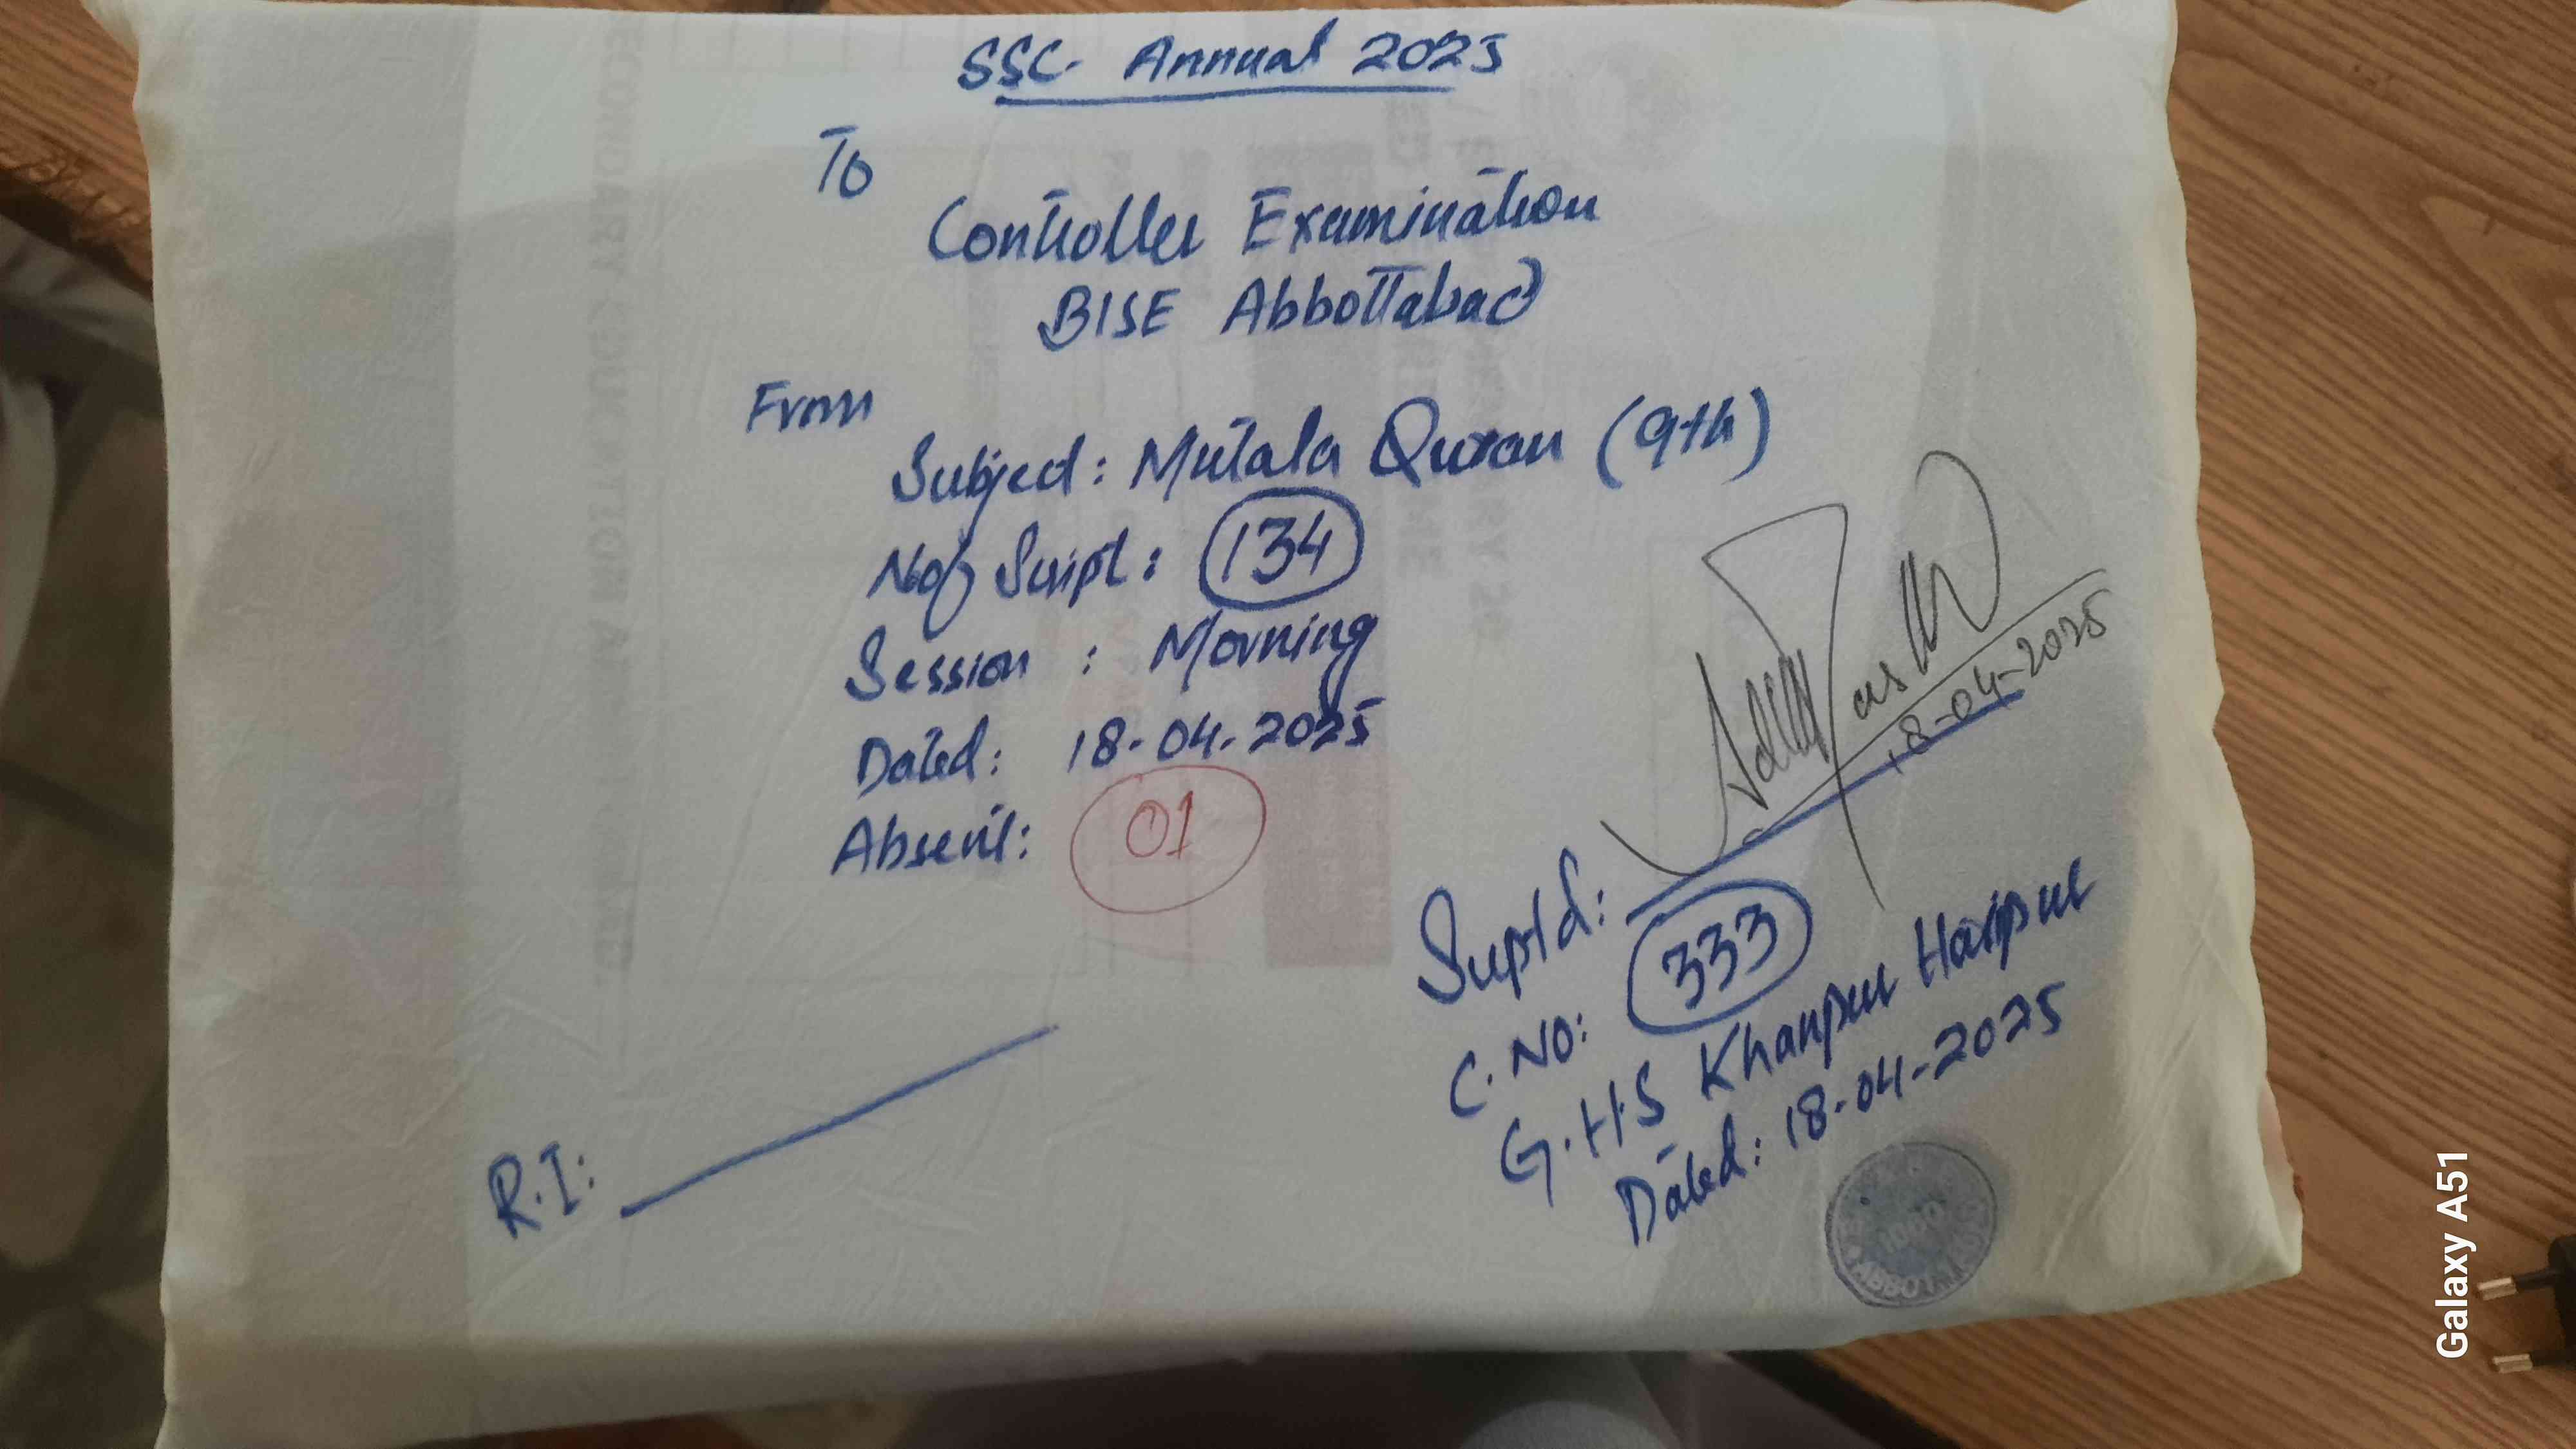 SSC Annual 2025
To
Controller Examination
BISE Abbottabad
From
Subject: Mutala Quran (9th)
No of Script: 134
Session : Morning
Dated: 18-04-2025
Absent: 01
18-04-2025
Suptd:
C.NO: 333
G.H.S Khanpur Haripur
Dated: 18-04-2025
R.I:
Galaxy A51